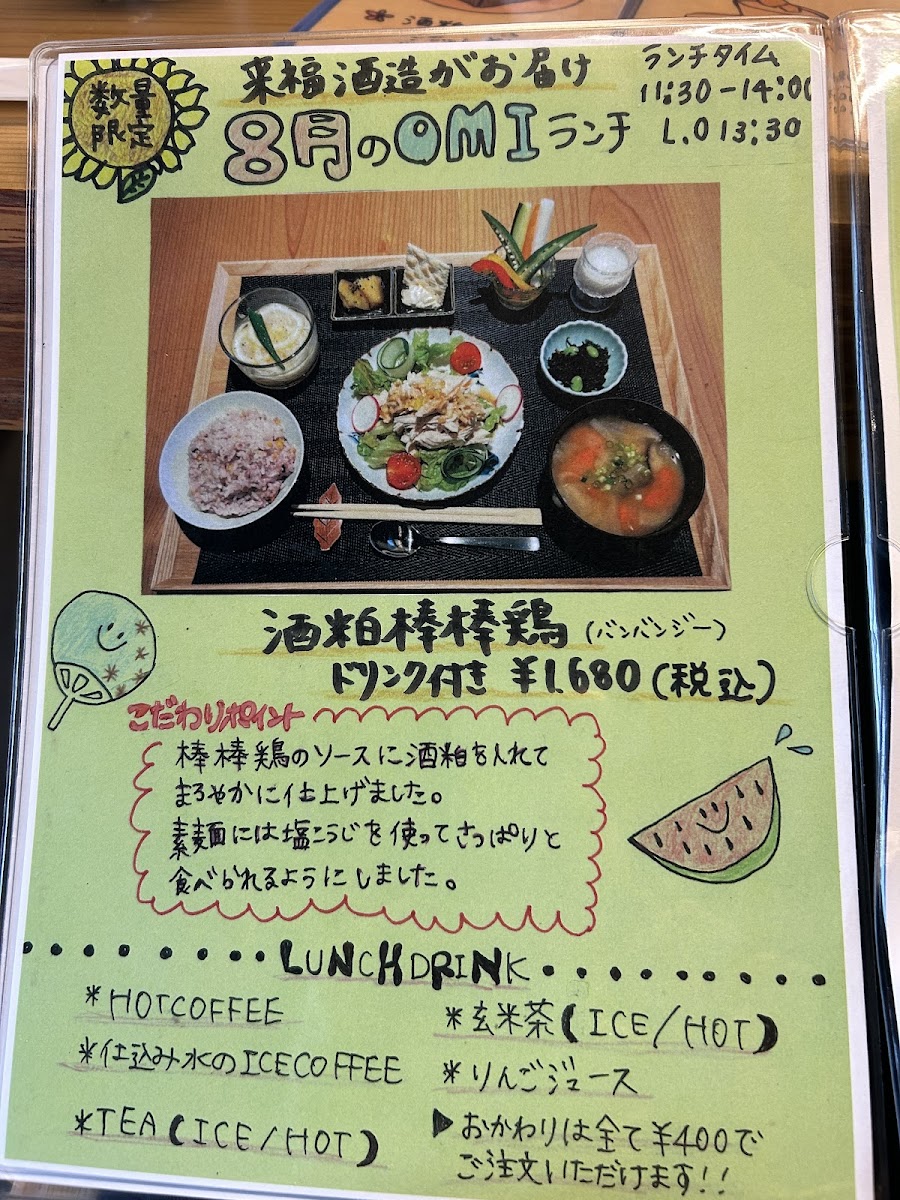 数量
限定
来福酒造がお届け
8月のOMIランチ
ランチタイム
11:30-14:00
L.O 13:30
酒粕棒棒鶏(バンバンジー)
ドリンク付き ¥1,680(税込)
こだわりポイント
棒棒鶏のソースに酒粕を入れて
まろやかに仕上げました。
素麺には塩こうじを使ってさっぱりと
食べられるようにしました。
LUNCH DRINK
*HOTCOFFEE
*仕込み水のICECOFFEE
*TEA(ICE/HOT)
*玄米茶(ICE/HOT)
*りんごジュース
▶おかわりは全て¥400で
ご注文いただけます!!